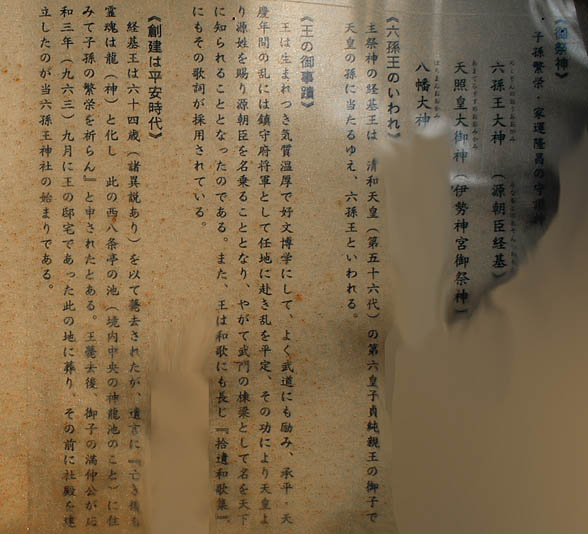 《御祭神》
子孫繁栄・家運隆昌の守護神
六孫王大神 （源朝臣経基）
天照皇大御神（伊勢神宮御祭神）
八幡大神
《六孫王のいわれ》
主祭神の経基王は 清和天皇（第五十六代）の第六皇子貞純親王の御子で
天皇の孫に当たるゆえ、六孫王といわれる。
《王の御事蹟》
王は生まれつき気質温厚で好文博学にして、よく武道にも励み、承平・天
慶年間の乱には鎮守府将軍として任地に赴き乱を平定、その功により天皇よ
り源姓を賜り源朝臣を名乗ることとなり、やがて武門の棟梁として名を天下
に知られることとなったのである。また、王は和歌にも長じ『拾遺和歌集』
にもその歌詞が採用されている。
《創建は平安時代》
経基王は六十四歳（諸異説あり）を以て薨去されたが、遺言に『亡き後も
霊魂は龍（神）と化し 此の西八条亭の池（境内中央の神龍池のこと）に住
みて子孫の繁栄を祈らん』と申されたとある。王薨去後、御子の満仲公が応
和三年（九六三）九月に王の邸宅であった此の地に葬り、その前に社殿を建
立したのが当六孫王神社の始まりである。